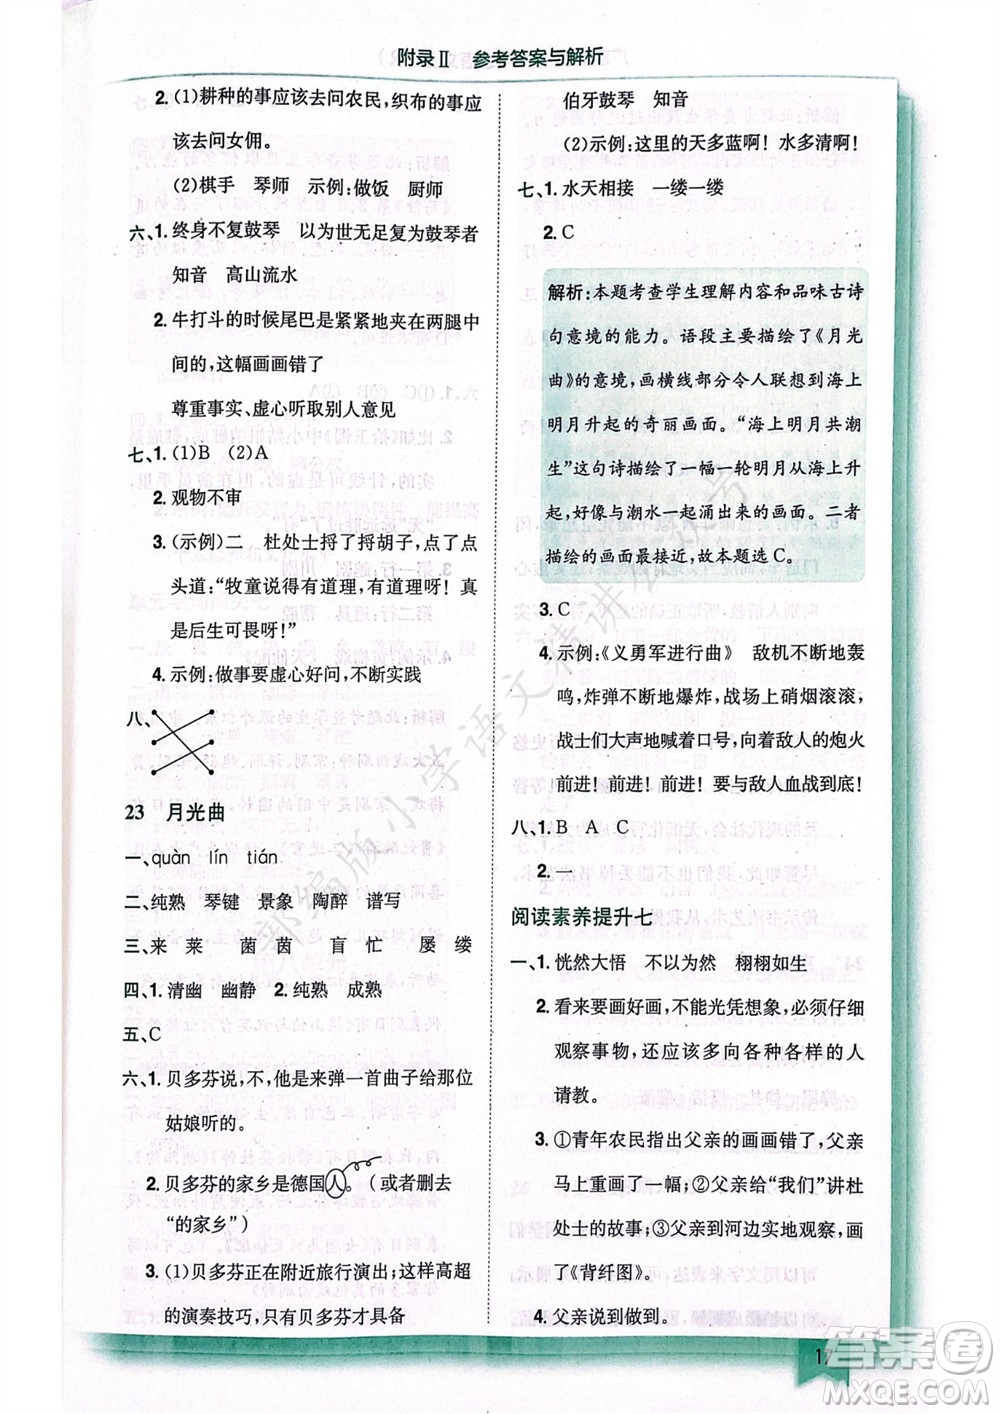 附录Ⅱ 参考答案与解析
2. (1)耕种的事应该去问农民,织布的事应
该去问女佣。
(2)棋手 琴师 示例:做饭 厨师
六、1. 终身不复鼓琴 以为世无足复为鼓琴者
知音 高山流水
2. 牛打斗的时候尾巴是紧紧地夹在两腿中
间的,这幅画画错了
尊重事实、虚心听取别人意见
七、1. (1)B (2)A
2. 观物不审
3. (示例)二 杜处士捋了捋胡子,点了点
头道:“牧童说得有道理,有道理呀!真
是后生可畏呀!”
4. 示例:做事要虚心好问,不断实践
八、
23 月光曲
一、quàn lín tián
二、纯熟 琴键 景象 陶醉 谱写
三、来 莱 菌 茵 盲 忙 屡 缕
四、1. 清幽 幽静 2. 纯熟 成熟
五、C
六、1. 贝多芬说,不,他是来弹一首曲子给那位
姑娘听的。
2. 贝多芬的家乡是德国人。(或者删去
“的家乡”)
3. (1)贝多芬正在附近旅行演出;这样高超
的演奏技巧,只有贝多芬才具备
伯牙鼓琴 知音
(2)示例:这里的天多蓝啊!水多清啊!
七、1. 水天相接 一缕一缕
2. C
解析:本题考查学生理解内容和品味古诗
句意境的能力。语段主要描绘了《月光
曲》的意境,画横线部分令人联想到海上
明月升起的奇丽画面。“海上明月共潮
生”这句诗描绘了一幅一轮明月从海上升
起,好像与潮水一起涌出来的画面。二者
描绘的画面最接近,故本题选C。
3. C
4. 示例:《义勇军进行曲》 敌机不断地轰
鸣,炸弹不断地爆炸,战场上硝烟滚滚,
战士们大声地喊着口号,向着敌人的炮火
前进!前进!前进!要与敌人血战到底!
八、1. B A C
2. 一
阅读素养提升七
一、1. 恍然大悟 不以为然 栩栩如生
2. 看来要画好画,不能光凭想象,必须仔细
观察事物,还应该多向各种各样的人
请教。
3. ①青年农民指出父亲的画画错了,父亲
马上重画了一幅;②父亲给“我们”讲杜
处士的故事;③父亲到河边实地观察,画
了《背纤图》。
4. 父亲说到做到。
部编版小学语文精讲公众号
17
答案圈
MXQE.COM